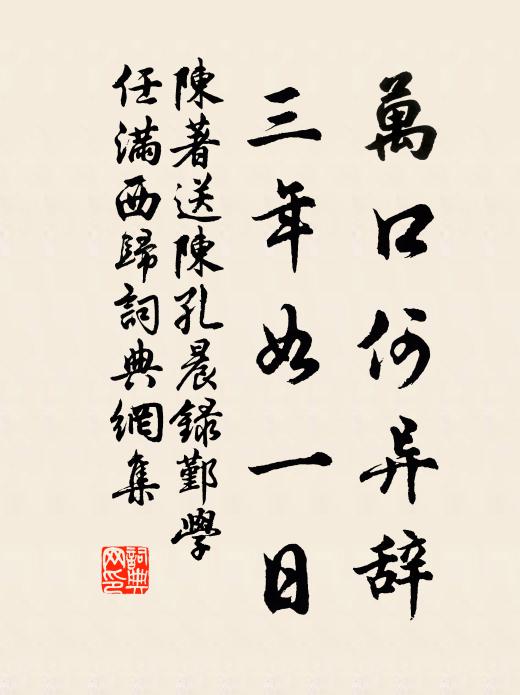 萬口何异辞
三年如一日
陳著送陳孔晨録鄞學
任滿西歸詞典網集
詞典网印